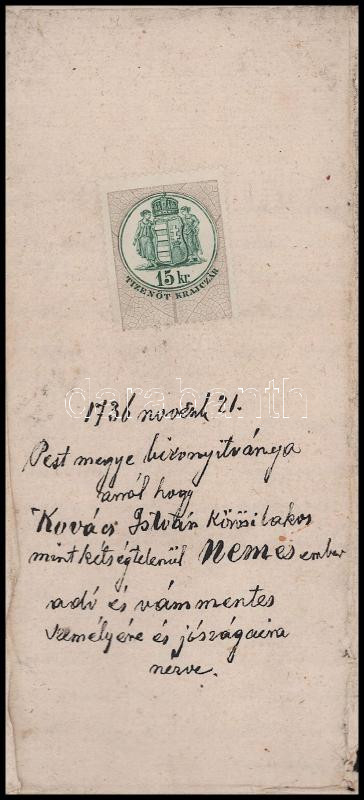 15 kr.
TIZENÖT KRAJCZÁR
darabanth
1736 novemb 21.
Pest megye bizonyitványa
arról hogy
Kovács István Körösi lakos
mint kétségtelenül Nemes ember
adó és vámmentes
személyére és jószágaira
nézve.